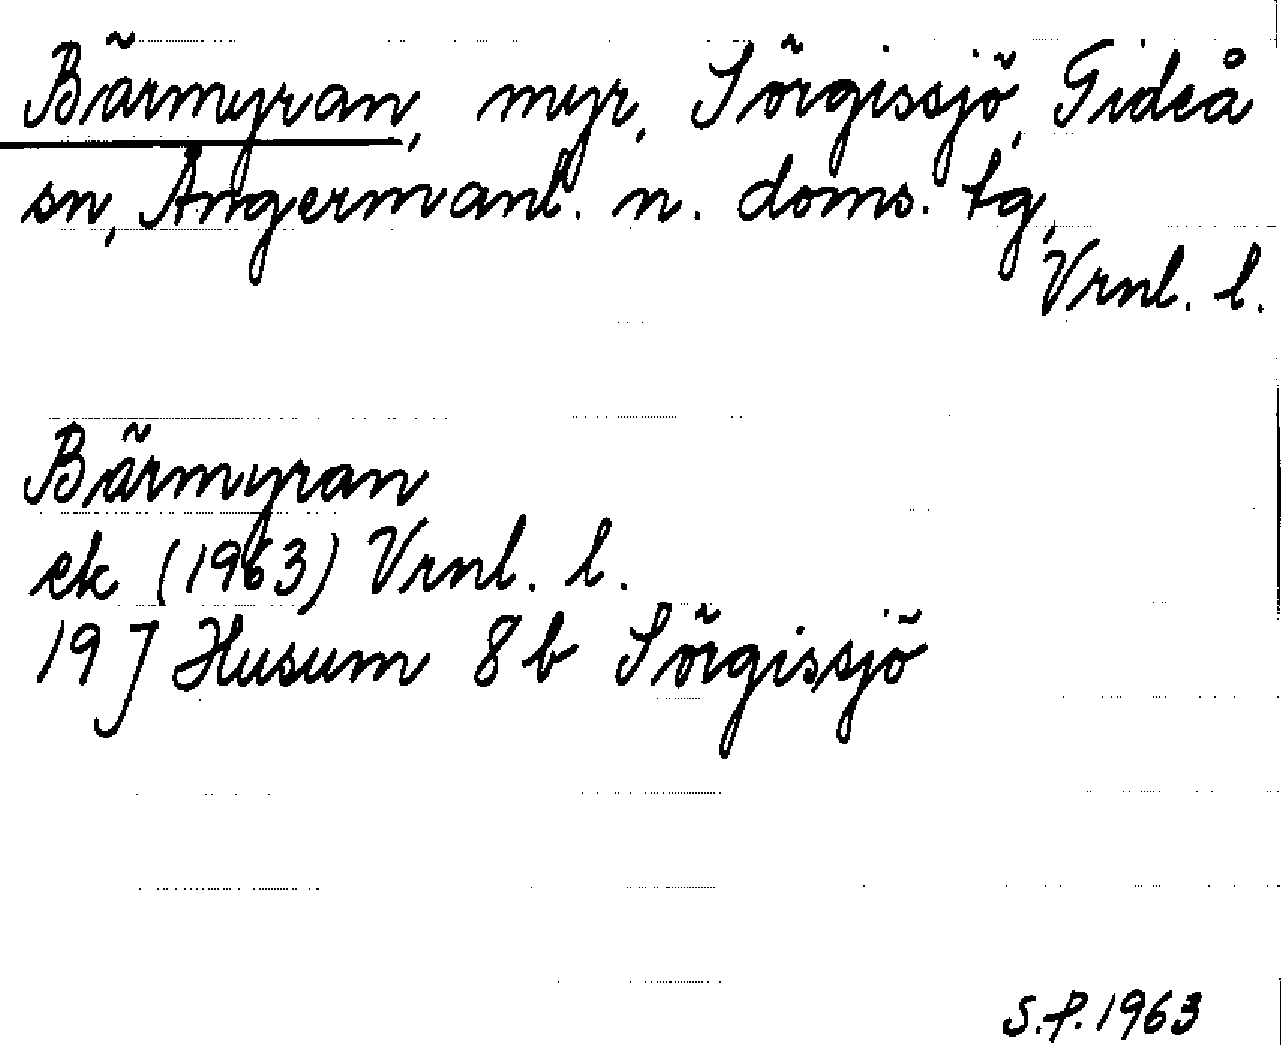 Bärmyran, myr, Sörgissjö, Gideå
sn, Ångermanl. n. doms. tg,
Vrnl. l.
Bärmyran
ek (1963) Vrnl. l.
19 J Husum 8 b Sörgissjö
S.P. 1963